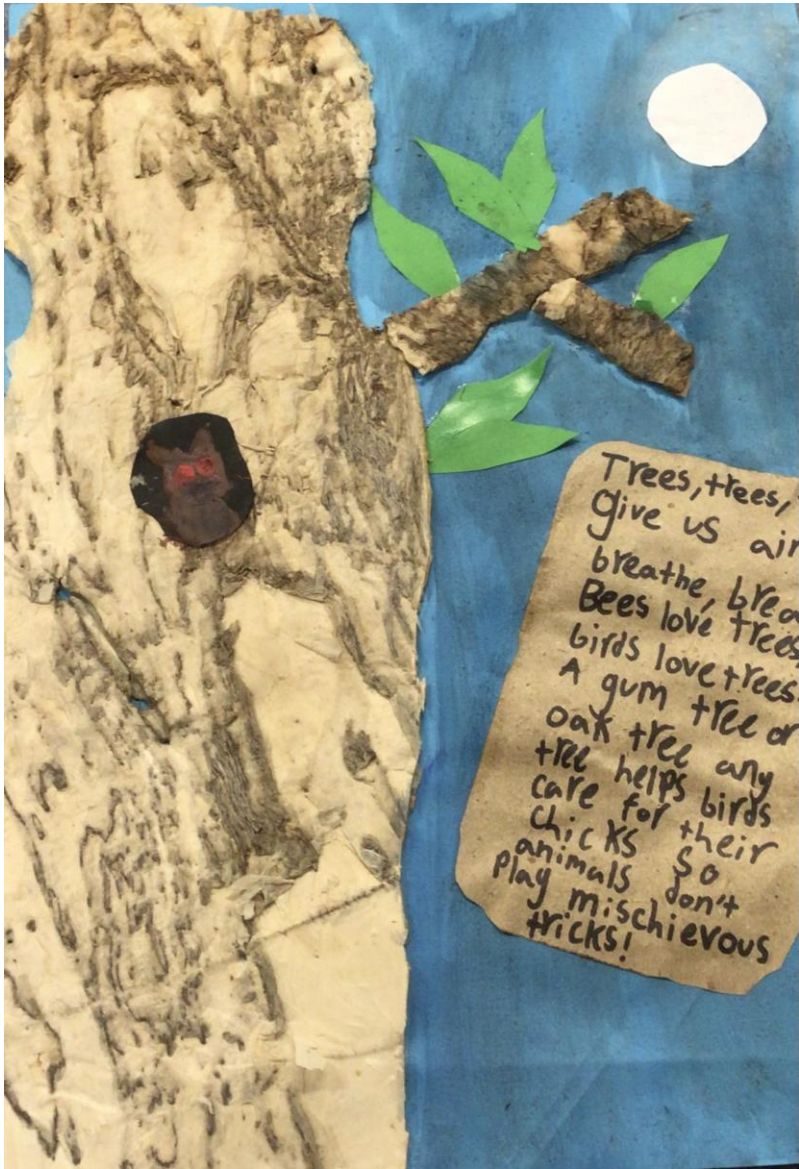 Trees, trees,
Give us air
breathe,
Bees love trees,
birds love trees.
A gum tree or
oak tree any
tree helps birds
care for their
chicks so
animals don't
play mischievous
tricks!